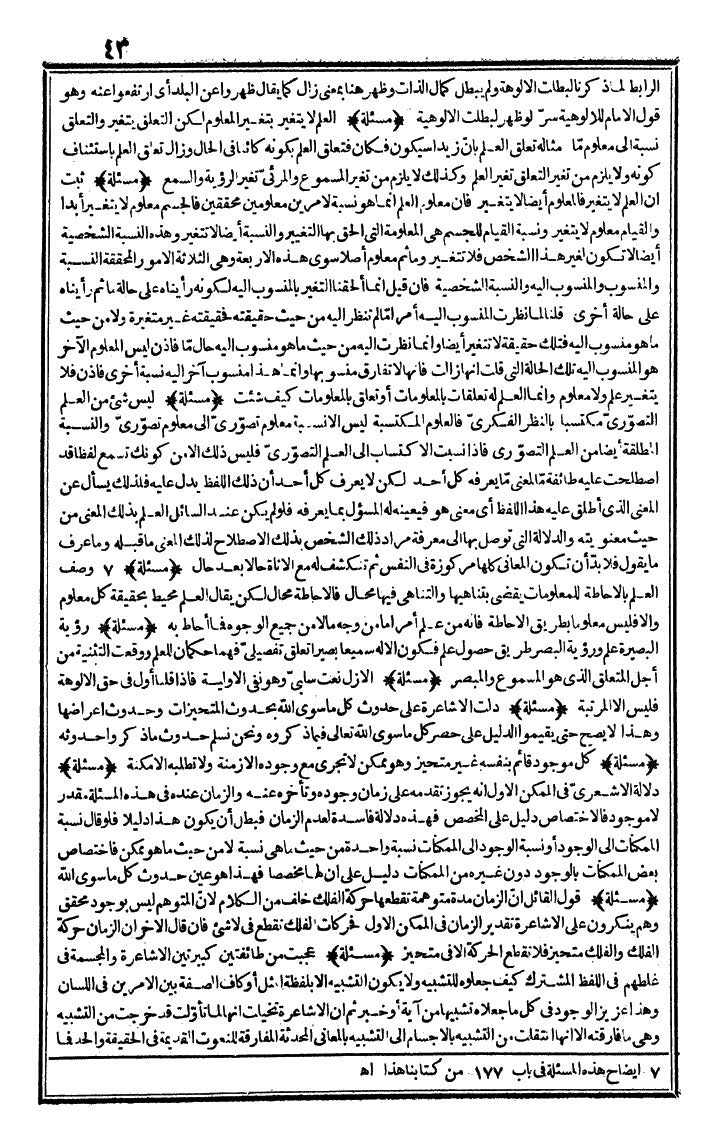 ٤٣
الرابط لما ذكرنا لبطلت الالوهة ولم يبطل كمال الذات وظهر هنا بمعنى زال كما يقال ظهروا عن البلد أى ارتفعوا عنه وهو
قول الامام للالوهية سرّ لوظهر لبطلت الالوهية ﴿مسئلة﴾ العلم لا يتغير بتغير المعلوم لكن التعلق يتغير والتعلق
نسبة الى معلوم مّا مثاله تعلق العلم بانّ زيدا سيكون فكان فتعلق العلم بكونه كائنا فى الحال وزال تعلق العلم باستئناف
كونه ولا يلزم من تغير التعلق تغير العلم وكذلك لا يلزم من تغير المسموع والمرئىّ تغير الرؤية والسمع ﴿مسئلة﴾ ثبت
ان العلم لا يتغير فالمعلوم أيضا لا يتغير فان معلوم العلم انما هو نسبة لامرين معلومين محققين فالجسم معلوم لا يتغير أبدا
والقيام معلوم لا يتغير ونسبة القيام للجسم هى المعلومة التى الحق بها التغيير والنسبة أيضا لا تتغير وهذه النسبة الشخصية
أيضا لا تكون لغير هذا الشخص فلا تتغير وما ثم معلوم أصلا سوى هذه الاربعة وهى الثلاثة الامور المحققة النسبة
والمنسوب والمنسوب اليه والنسبة الشخصية فان قيل انما ألحقنا التغير بالمنسوب اليه لكونه رأيناه على حالة ما ثم رأيناه
على حالة أخرى قلنا لما نظرت المنسوب اليه أمر امّا لم تنظر اليه من حيث حقيقته فحقيقته غير متغيرة ولا من حيث
ما هو منسوب اليه فتلك حقيقة لا تتغير أيضا وانما نظرت اليه من حيث ما هو منسوب اليه حال مّا فاذن ليس المعلوم الآخر
هو المنسوب اليه تلك الحالة التى قلت انها زالت فانها لا تفارق منسوبها وانما هذا منسوب آخر اليه نسبة أخرى فاذن فلا
يتغير علم ولا معلوم وانما العلم له تعلقات بالمعلومات أو تعلق بالمعلومات كيف شئت ﴿مسئلة﴾ ليس شئ من العلم
التصورىّ مكتسبا بالنظر الفكرىّ فالعلوم المكتسبة ليس الا نسبة معلوم تصورىّ الى معلوم تصورىّ والنسبة
المطلقة أيضا من العلم التصورى فاذا نسبت الاكتساب الى العلم التصورىّ فليس ذلك الا من كونك تسمع لفظا قد
اصطلحت عليه طائفة مّا لمعنى مّا يعرفه كل أحد لكن لا يعرف كل أحد أن ذلك اللفظ يدل عليه فلذلك يسأل عن
المعنى الذى أطلق عليه هذا اللفظ أى معنى هو فيعينه له المسؤل بما يعرفه فلو لم يكن عند السائل العلم بذلك المعنى من
حيث معنويته والدلالة التى توصل بها الى معرفة مراد ذلك الشخص بذلك الاصطلاح لذلك المعنى ما قبله وما عرف
ما يقول فلا بدّ أن تكون المعانى كلها مركوزة فى النفس ثم تنكشف له مع الاناة حالا بعد حال ﴿مسئلة﴾ ٧ وصف
العلم بالاحاطة للمعلومات يقضى بتناهيها والتناهى فيها محال فالاحاطة محال لكن يقال العلم محيط بحقيقة كل معلوم
والا فليس معلوما بطريق الاحاطة فانه من علم أمرا ما من وجه ما لا من جميع الوجوه فما أحاط به ﴿مسئلة﴾ رؤية
البصيرة علم ورؤية البصر طريق حصول علم فكون الاله سميعا بصيرا تعلق تفصيلىّ فهما حكمان للعلم ووقعت التثنية من
أجل المتعلق الذى هو المسموع والمبصر ﴿مسئلة﴾ الازل نعت سلبىّ وهو نفى الاولية فاذا قلنا أول فى حق الالوهة
فليس الا المرتبة ﴿مسئلة﴾ دلت الاشاعرة على حدوث كل ماسوى الله بحدوث المتحيزات وحدوث اعراضها
وهذا لا يصح حتى يقيموا الدليل على حصر كل ماسوى الله تعالى فيما ذكروه ونحن نسلم حدوث ما ذكروا حدوثه
﴿مسئلة﴾ كل موجود قائم بنفسه غير متحيز وهو ممكن لا تجرى مع وجوده الازمنة ولا تطلبه الامكنة ﴿مسئلة﴾
دلالة الاشعرىّ فى الممكن الاول انه يجوز تقدمه على زمان وجوده وتأخره عنه والزمان عنده فى هذه المسئلة مقدر
لا موجود فالاختصاص دليل على المخصص فهذه دلالة فاسدة لعدم الزمان فبطل أن يكون هذا دليلا فلو قال نسبة
الممكنات الى الوجود أو نسبة الوجود الى الممكنات نسبة واحدة من حيث ما هى نسبة لا من حيث ما هو ممكن فاختصاص
بعض الممكنات بالوجود دون غيره من الممكنات دليل على ان لها مخصصا فهذا هو عين حدوث كل ماسوى الله
﴿مسئلة﴾ قول القائل انّ الزمان مدة متوهمة تقطعها حركة الفلك خلف من الكلام لانّ المتوهم ليس بوجود محقق
وهم ينكرون على الاشاعرة تقدير الزمان فى الممكن الاول فحركات الفلك تقطع فى لا شئ فان قال الآخر ان الزمان حركة
الفلك والفلك متحيز فلا تقطع الحركة الا فى متحيز ﴿مسئلة﴾ عجبت من طائفتين كبيرتين الاشاعرة والمجسمة فى
غلطهم فى اللفظ المشترك كيف جعلوه للتشبيه ولا يكون التشبيه الا بلفظة المثل أو كاف الصفة بين الامرين فى اللسان
وهذا عزيز الوجود فى كل ما جعلاه تشبيها من آية أو خبر ثم ان الاشاعرة تخيلت انها لما تأولت قد خرجت من التشبيه
وهى ما فارقته الا انها انتقلت من التشبيه بالاجسام الى التشبيه بالمعانى المحدثة المفارقة للنعوت القديمة فى الحقيقة والحد فما
٧ ايضاح هذه المسئلة فى باب ١٧٧ من كتابنا هذا اه